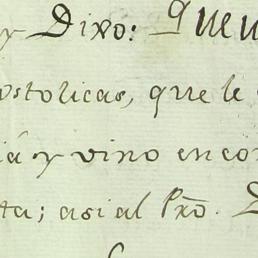 y Dixo: Que u
ostolicas, que le
ia y vino en con
ta; asi al Pro.